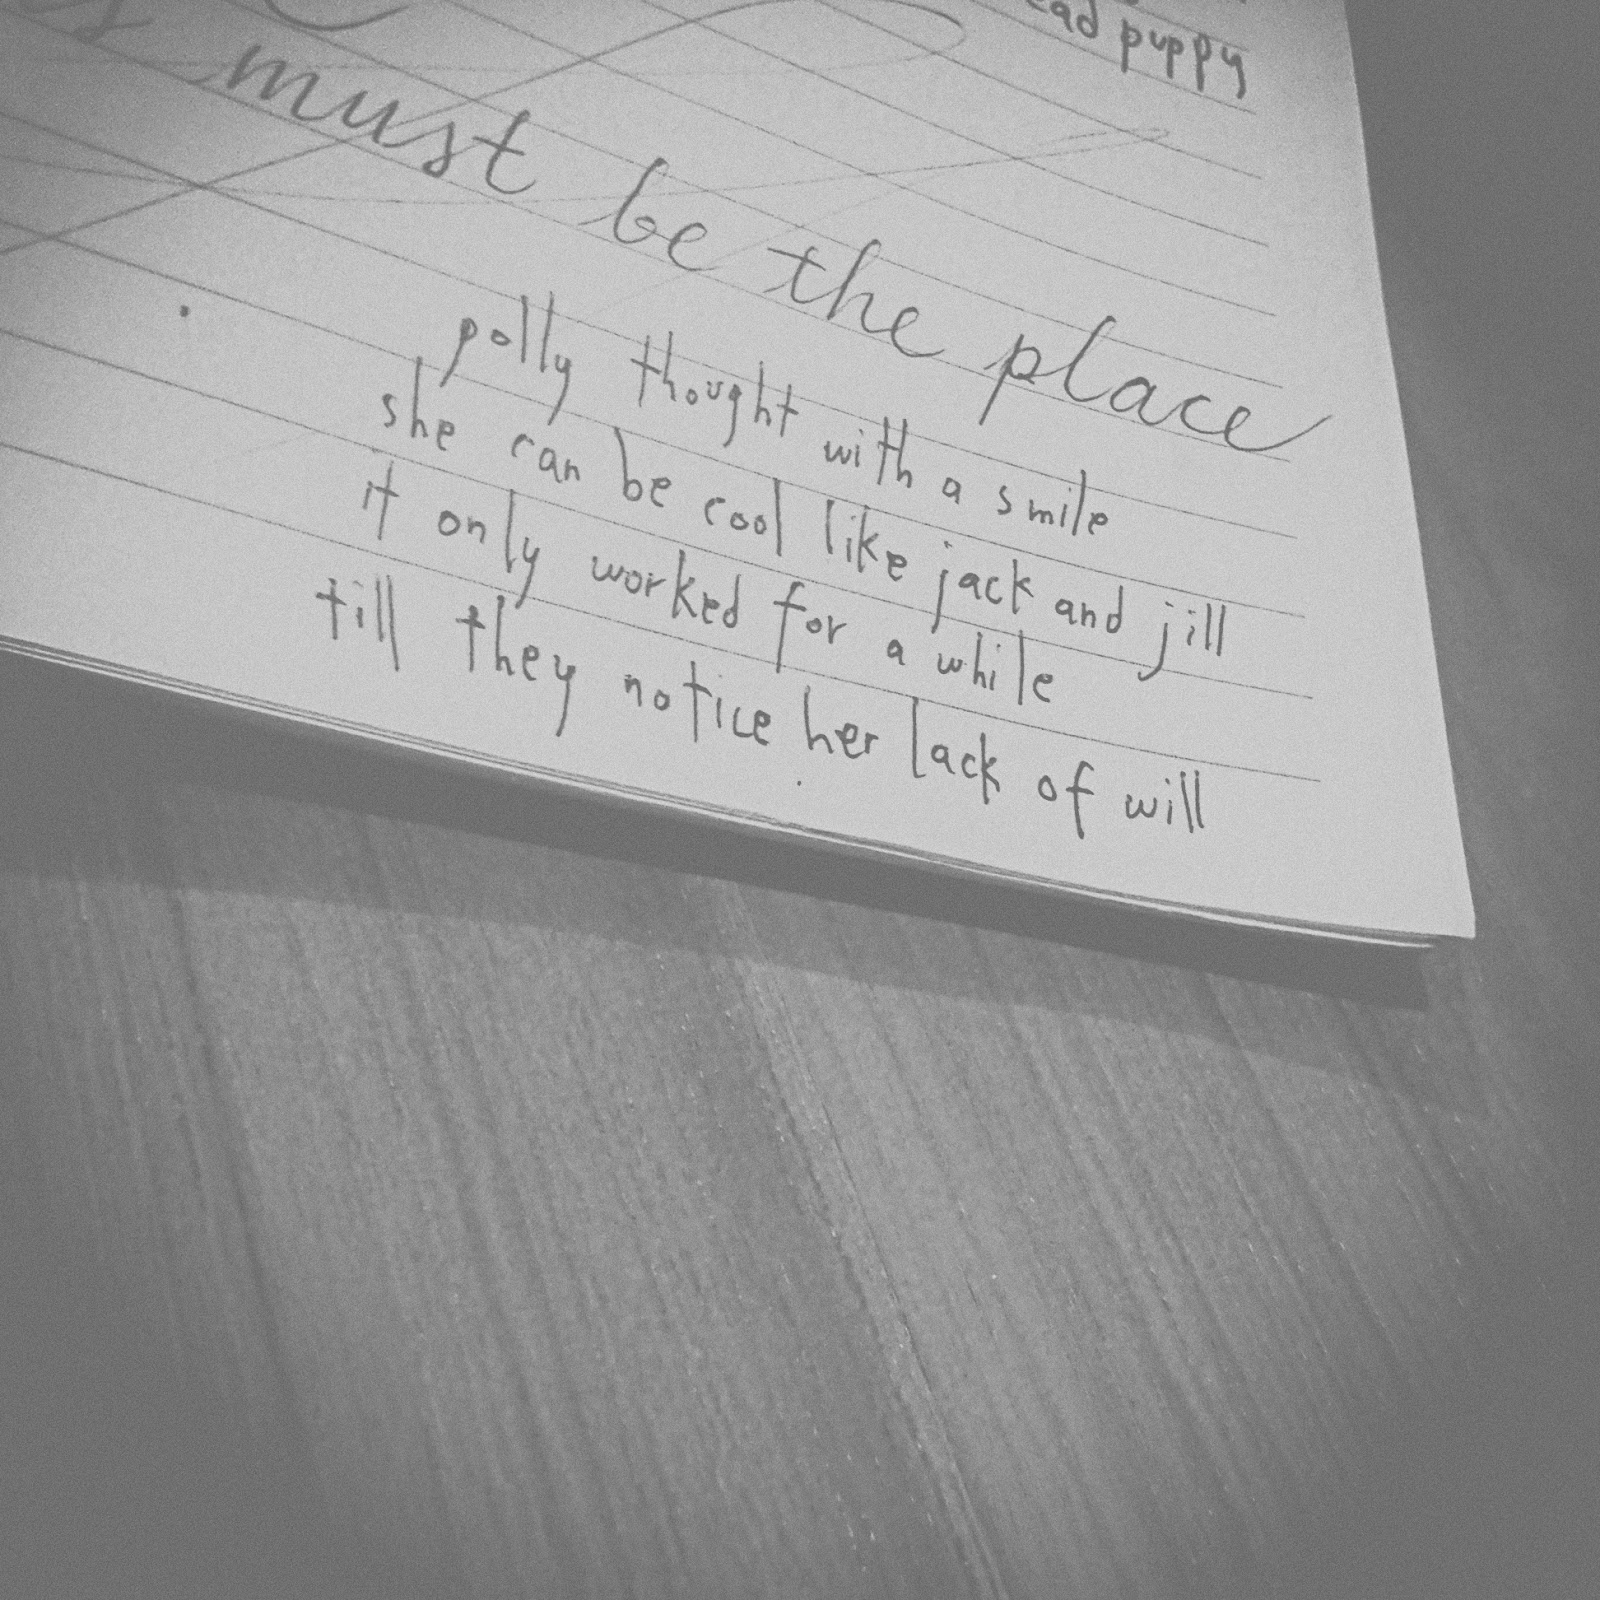 puppy
must be the place
polly thought with a smile
she can be cool like jack and jill
it only worked for a while
till they notice her lack of will